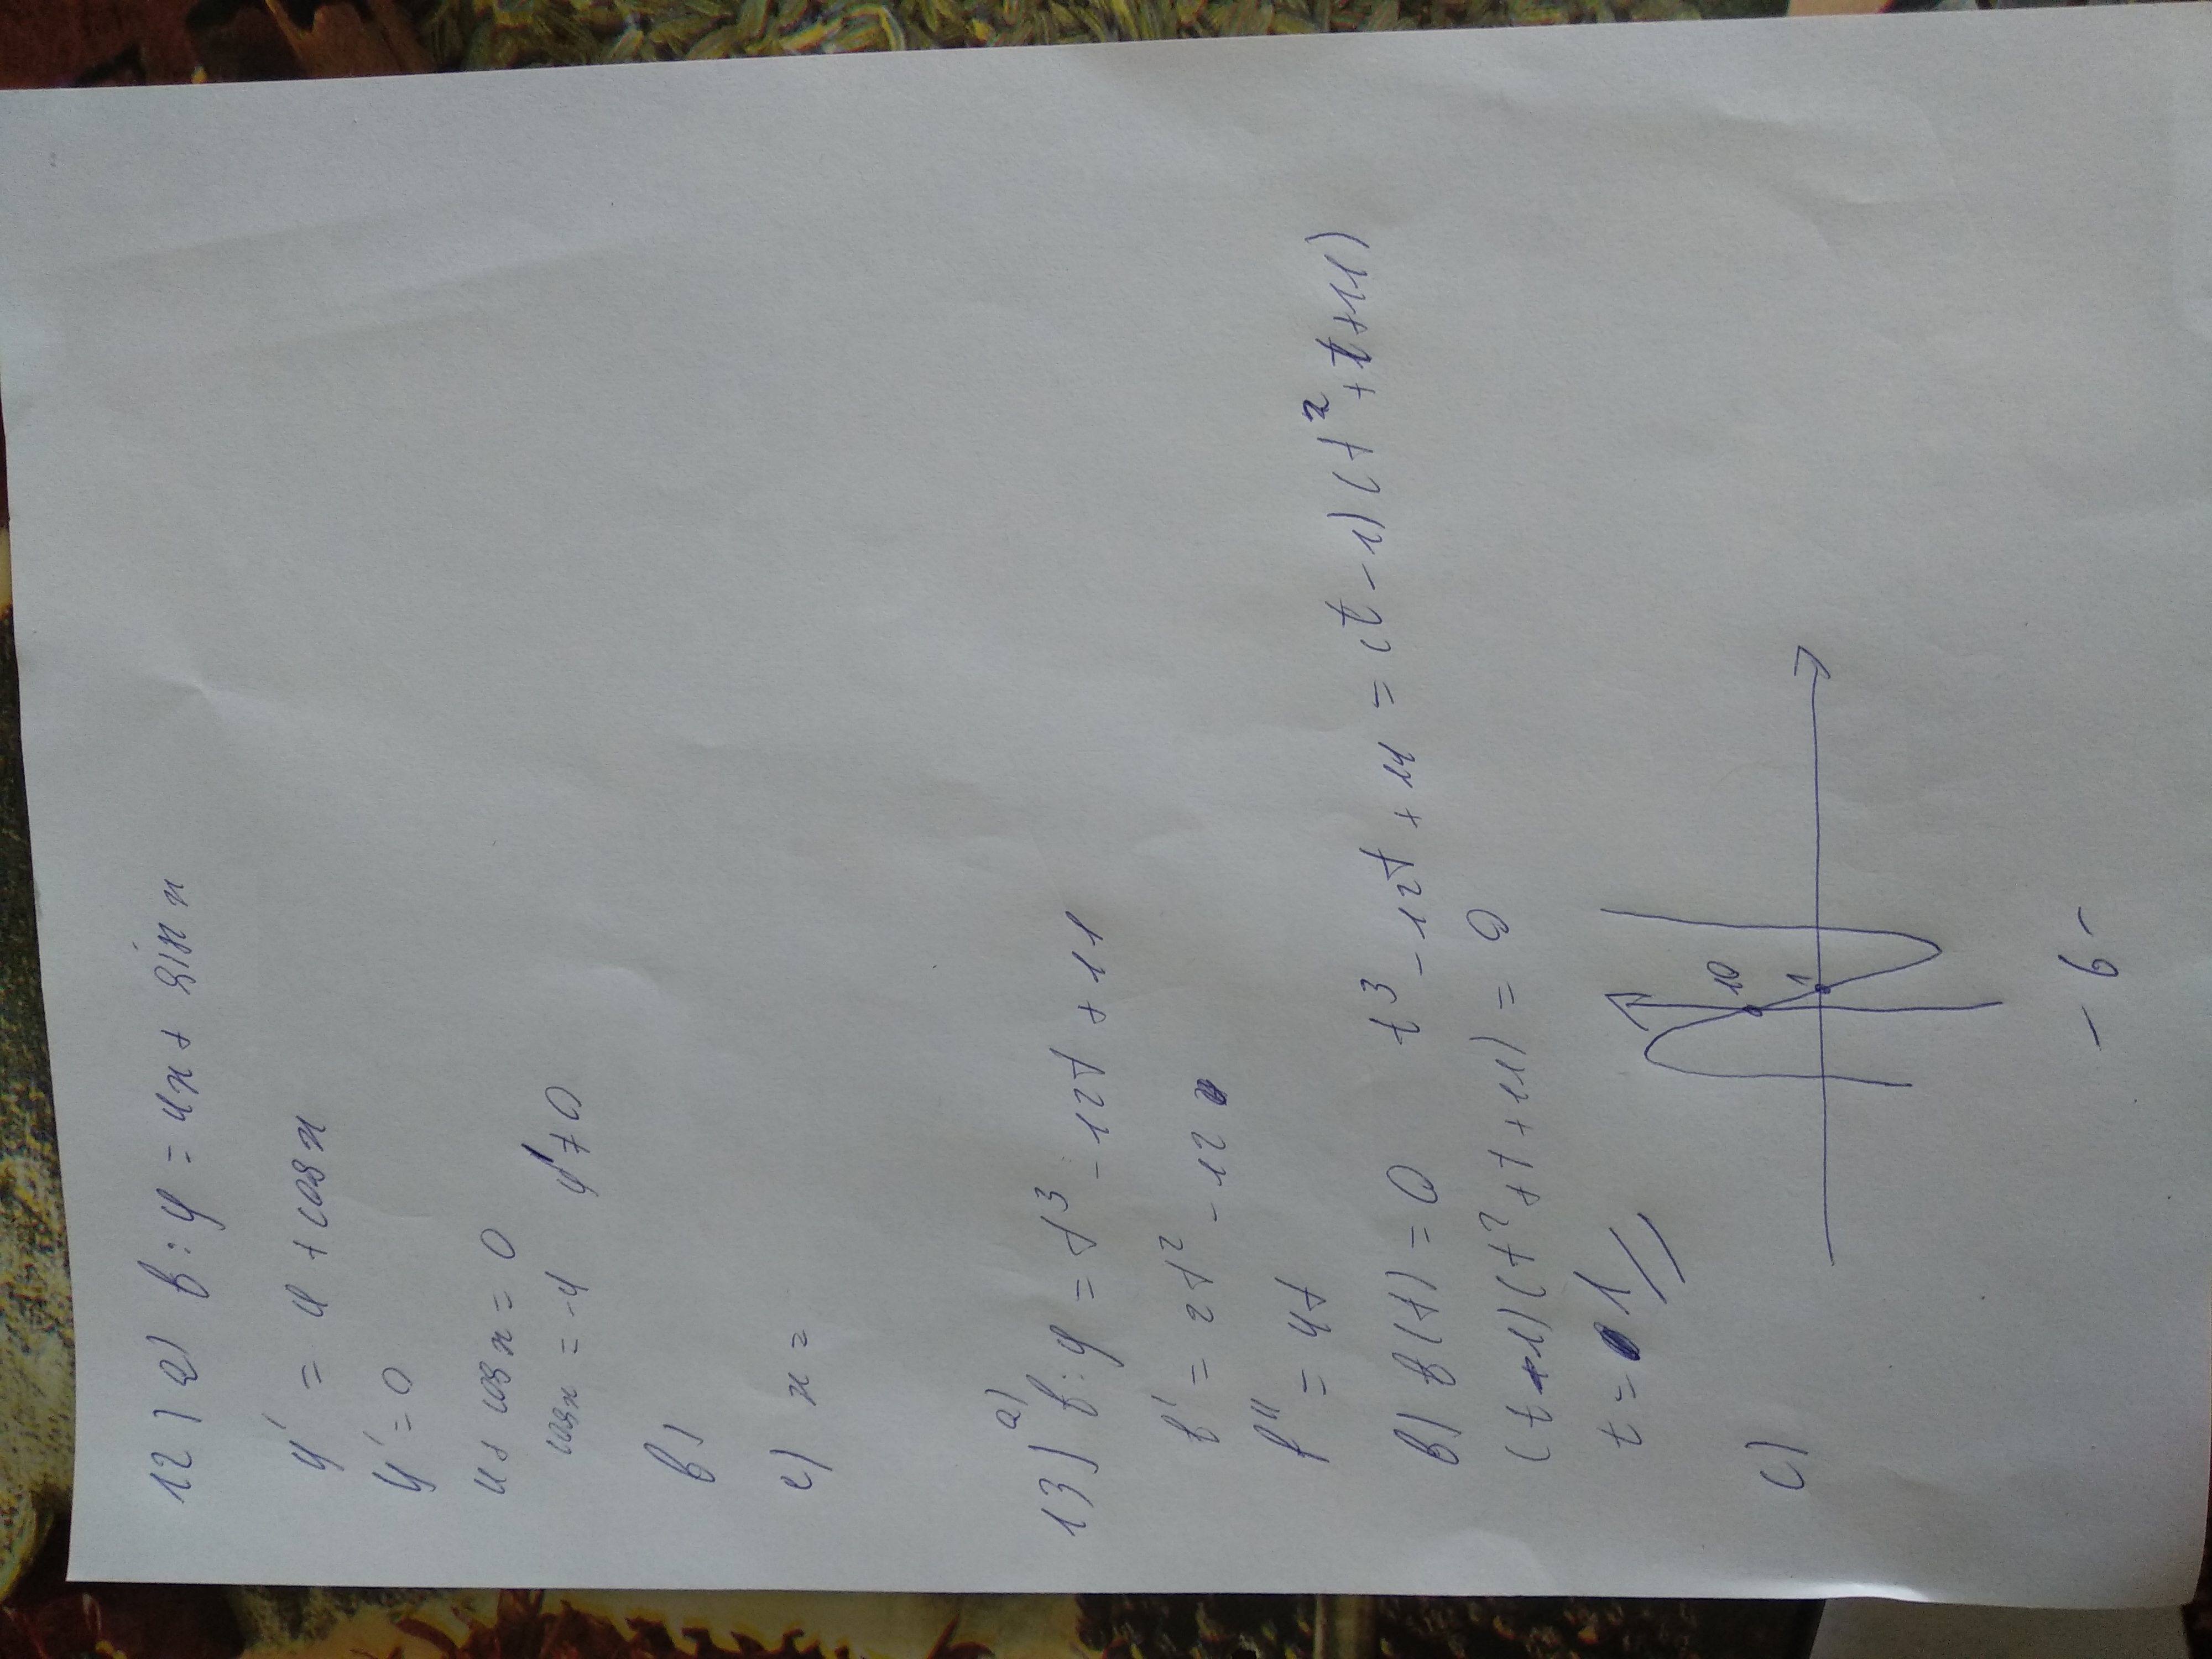 12) a) f: y = 4x + sin x
y' = 4 + cos x
y' = 0
4 + cos x = 0
cos x = -4 y' ≠ 0
b)
c) x =
13) a) f: y = t³ - 12t + 11
f' = 2t² - 12
f'' = 4t
b) f(t) = 0 t³ - 12t + 11 = (t - 1)(t² + t + 11)
(t - 1)(t² + t + 11) = 0
t = 1
c)
10
1
- 6 -